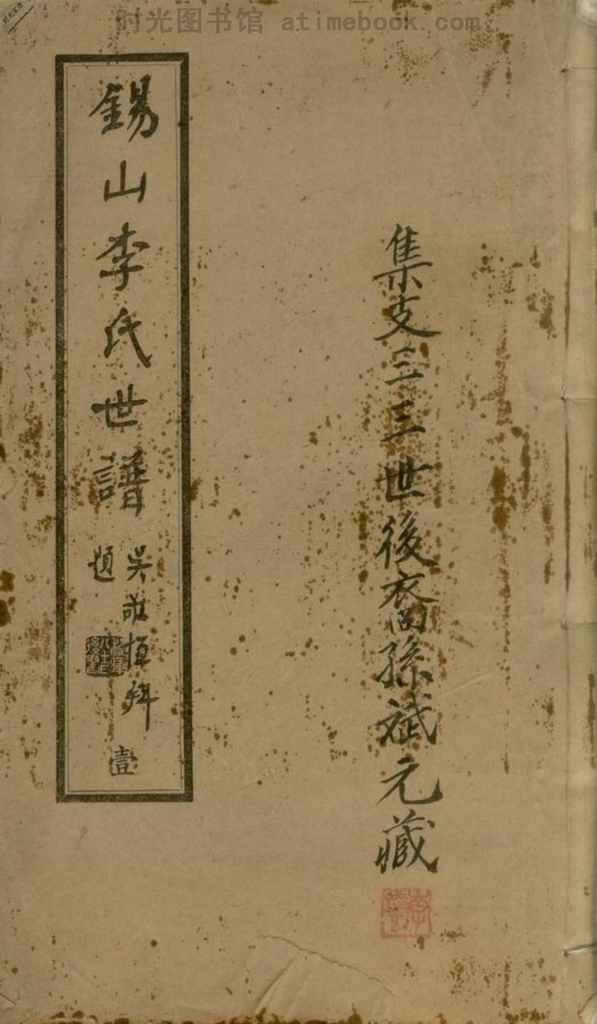 时光图书馆 atimebook.com
集支三三世後裔孫斌元藏
錫山李氏世譜
吳敬恆拜
題
壹